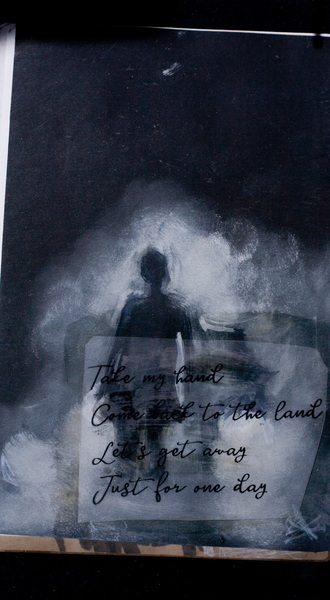 Take my hand
Come back to the land
Let's get away
Just for one day